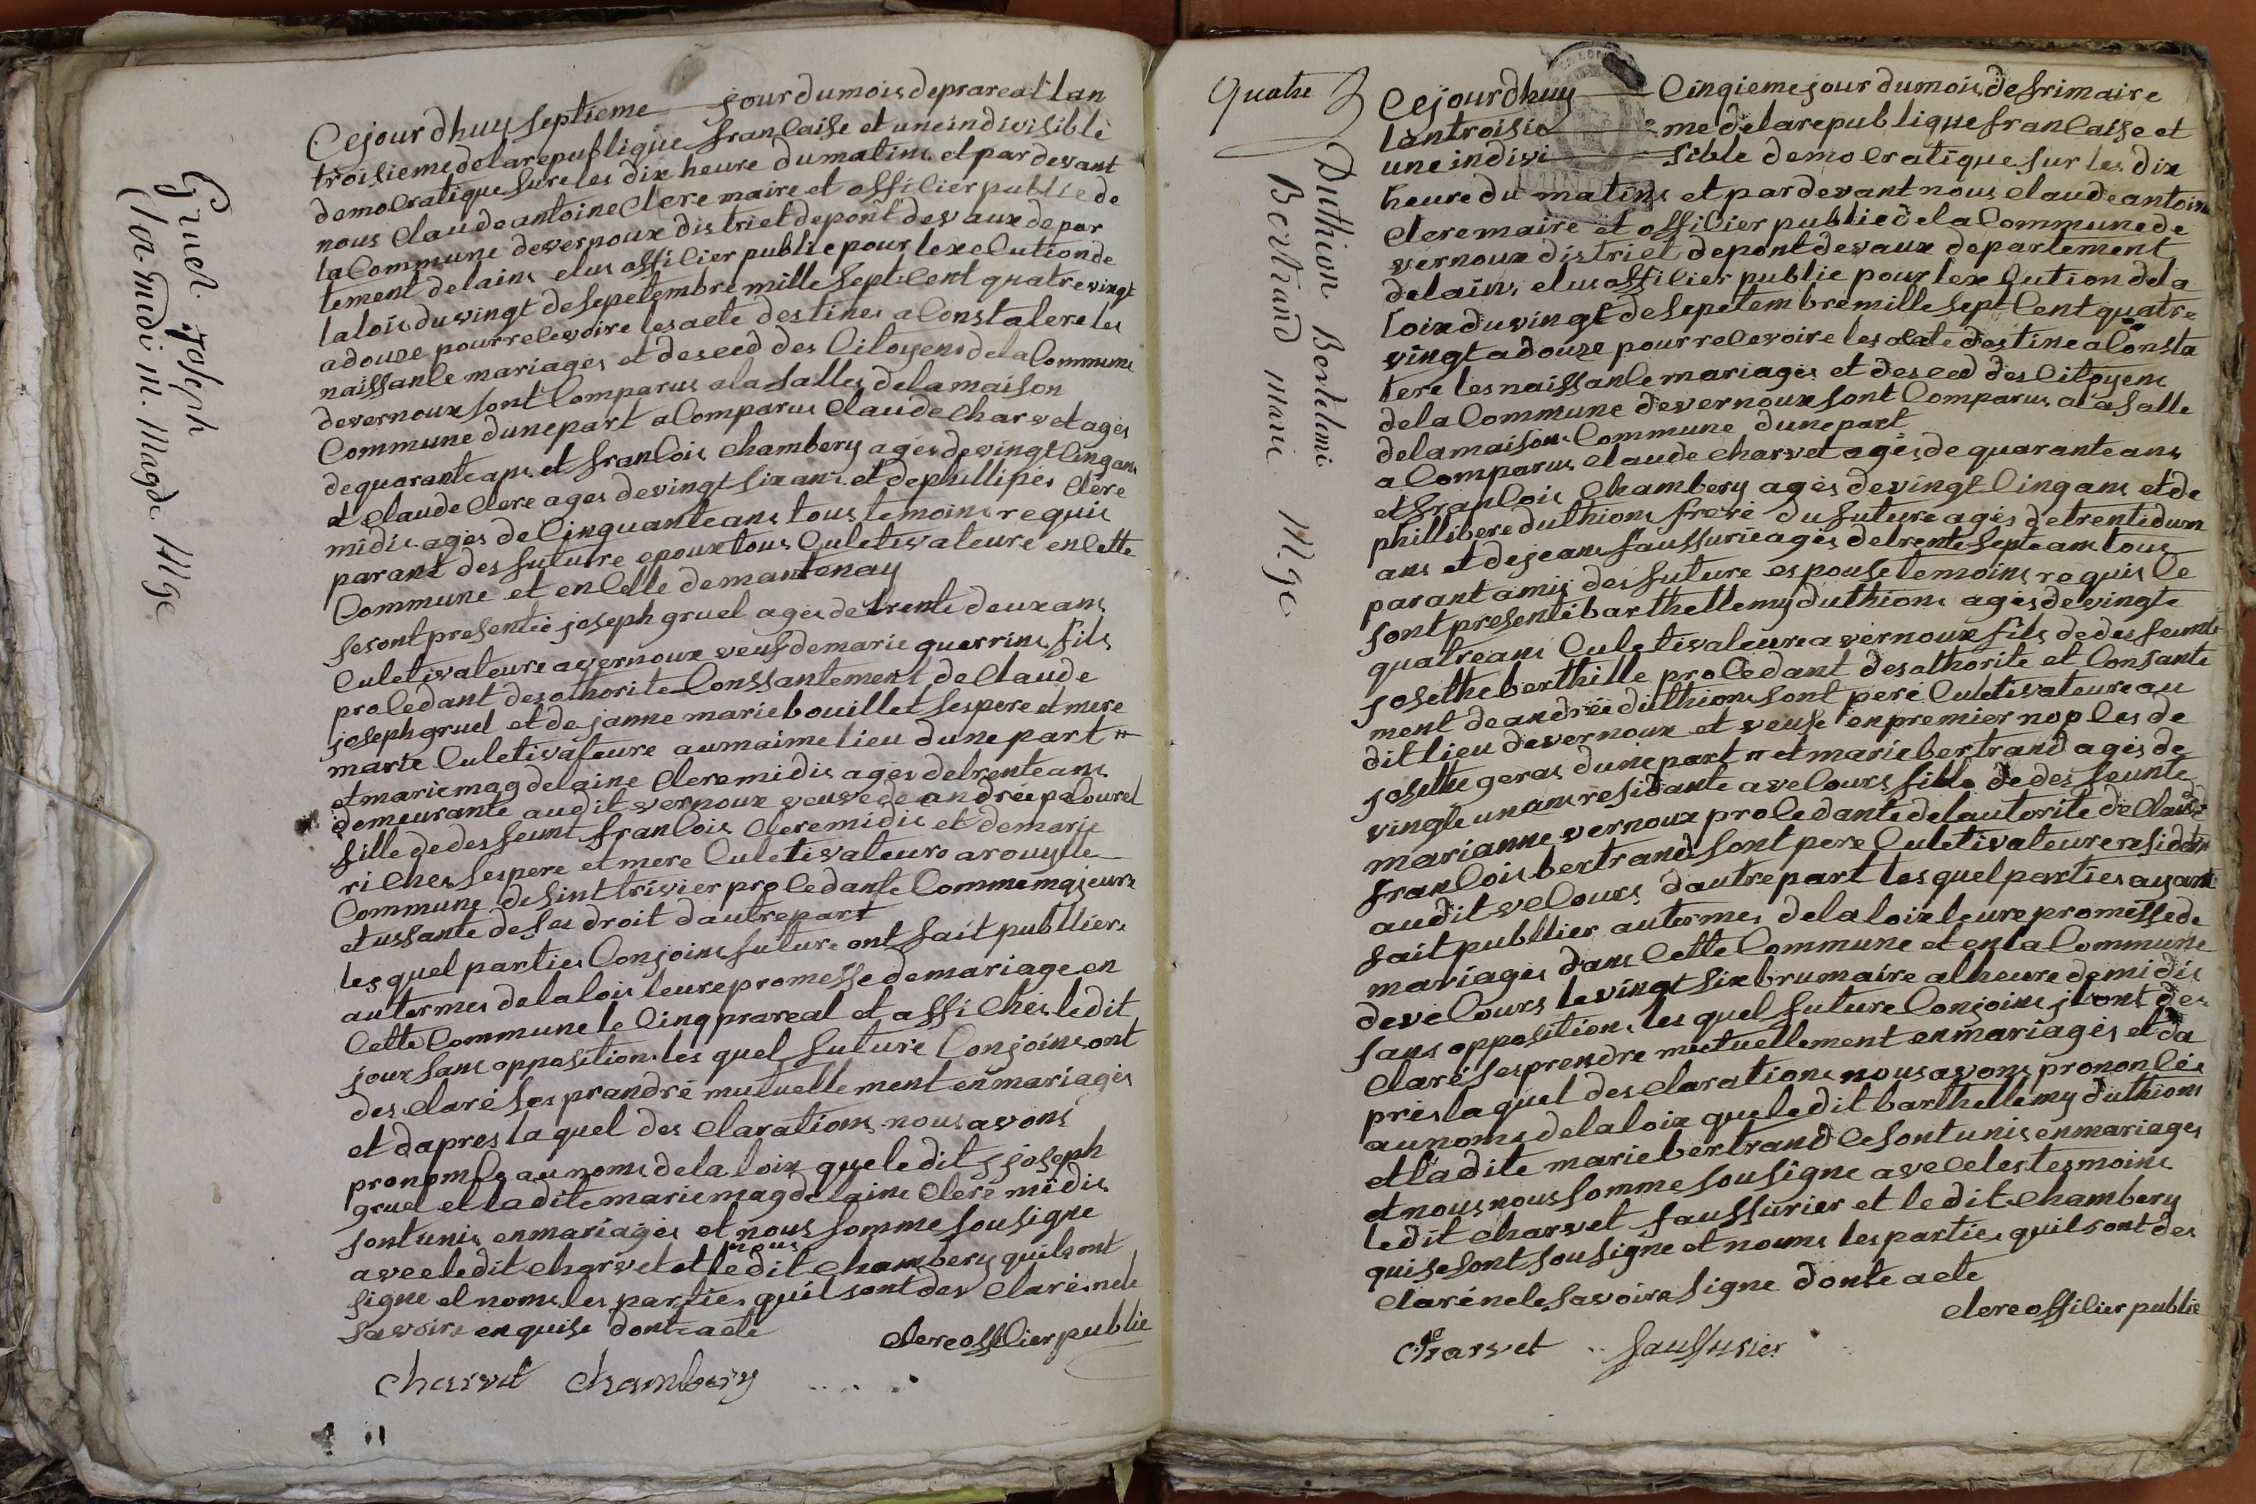 Gruel joseph
Clere midi m. Magde Mge
Cejourdhuy septieme jour du mois de prareal lan
troisieme de la republique francaise et une indivisible
democratique sure les dix heure du matins et par devant
nous Claude antoine Clere maire et officier public de
la Commune de vernoux district de pont de vaux depar
tement delains elus officier public pour lexecution de
la lois du vingt de sepetembre mille sept cent quatre vingt
adouze pour recevoire les acte destines a Constatere les
naissance mariages et deseed des Citoyens de la Commune
devernoux sont Comparus a la salles de la maison
Commune dune part a Comparus Claude Charvet ages
de quarante ans et francois Chambery ages de vingt Cinq ans
et Claude Clere ages de vingt six ans et de phillipes Clere
midis ages de Cinquante ans tous temoins requis
parant des future epoux tous Culetivateure en Cette
Commune et en Celle demantenay
se sont presentes joseph gruel ages de trente deux ans
Culetivateure a vernoux veuf de marie guerrins fils
procedant des othorite Conssantement de Claude
joseph gruel et de janne marie bouillet ses pere et mere
marie Culetivateure au maime lieu dune part "
et marie magdelaine Clere midis ages de trente ans
demeurante audit vernoux veuve de andrée pacouret
fille de des feunt francois Clere midis et de marie
riches ses pere et mere Culetivateure a rouylle
Commune de sint trivier procedante Comme majeure
et ussante de ses droit dautre part
les quel parties Conjoins future ont fait publlier
au termes de la lois leure promesse de mariage en
Cette Commune le Cinq prareal et affiches ledit
jour sans opposition les quel future Conjoins ont
des Claré ses prandré mutuellement en mariages
et dapres la quel des Claration nous avons
prononse au noms de la loix que ledit joseph
gruel et la dite marie magdelaine Clere midis
sont unis en mariages et nous somme sousigne
avec ledit Charvet et ledit Chambery quils ont
nous
signe et noms les parties quil sont des Claré ne le
savoire enquise dont acte
Clere officier public
Charvet Chambery
quatre
Duthion Bertelemi
Bertrand marie Mge
Cejourdhuy Cinqieme jour du mois de frimaire
lan troisie me de la republique francaise et
une indivi sible democratique sur les dix
heure du matins et par devant nous Claude antoine
Clere maire et officier public de la Commune de
vernoux district de pont de vaux departement
delains elus officier public pour lex Cution de la
loix du vingt de sepetembre mille sept Cent quatre
vingt adouze pour recevoire les acte destine a Consta
tere les naissance mariages et deseed des Citoyens
de la Commune de vernoux sont Comparus a la salle
de la maison Commune dune part
a Comparus Claude Charvet ages de quarante ans
et francois Chambery ages de vingt Cinq ans et de
phillibere duthions frere du future ages de trente dun
ans et de jeans faussurie ages de trente septe ans tous
parant amis des future espouse temoins requis Ce
sont presenté barthellemy duthions ages de vingte
quatre ans Culetivateure a vernoux fils de des feunte
josethe berthille procedant des othorite et Consante
ment de andrée duthions sont pere Culetivateure au
dit lieu de vernoux et veuse en premier nopces de
josette geras dune part " et marie bertrand ages de
vingte un ans residante a veCours fille de des feunte
marianne vernoux procedante de lautorite de Claude
francois bertrand sont pere Culetivateure residente
audit veCours dautre part les quel parties ayant
fait publlier au termes de la loix leure promesse de
mariages dans Cette Commune et en la Commune
de veCours le vingt six brumaire a lheure de midis
sans opposition les quel future Conjoins ji ont des
Claré ses prendre mutuellement en mariages et da
pres la quel des Claration nous avons prononcés
au noms de la loix que ledit barthellemy duthions
et la dite marie bertrand Ce sont unis en mariages
et nous nous somme sousigne avec les tesmoins
ledit Charvet faussurier et ledit Chambery
qui se sont sousigne et noms les parties quil sont des
Claré ne le savoire signe donte acte
Clere officier public
Charvet faussurier